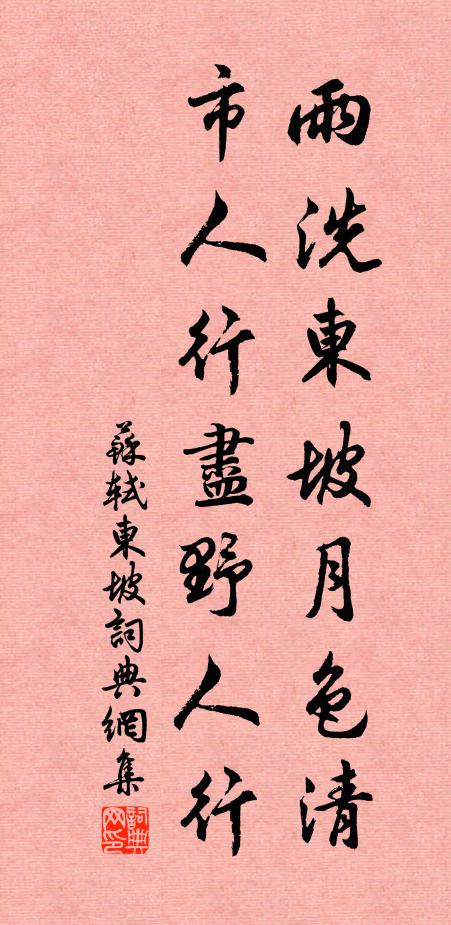 雨洗東坡月色清
市人行盡野人行
蘇軾東坡詞典網集
詞典网印